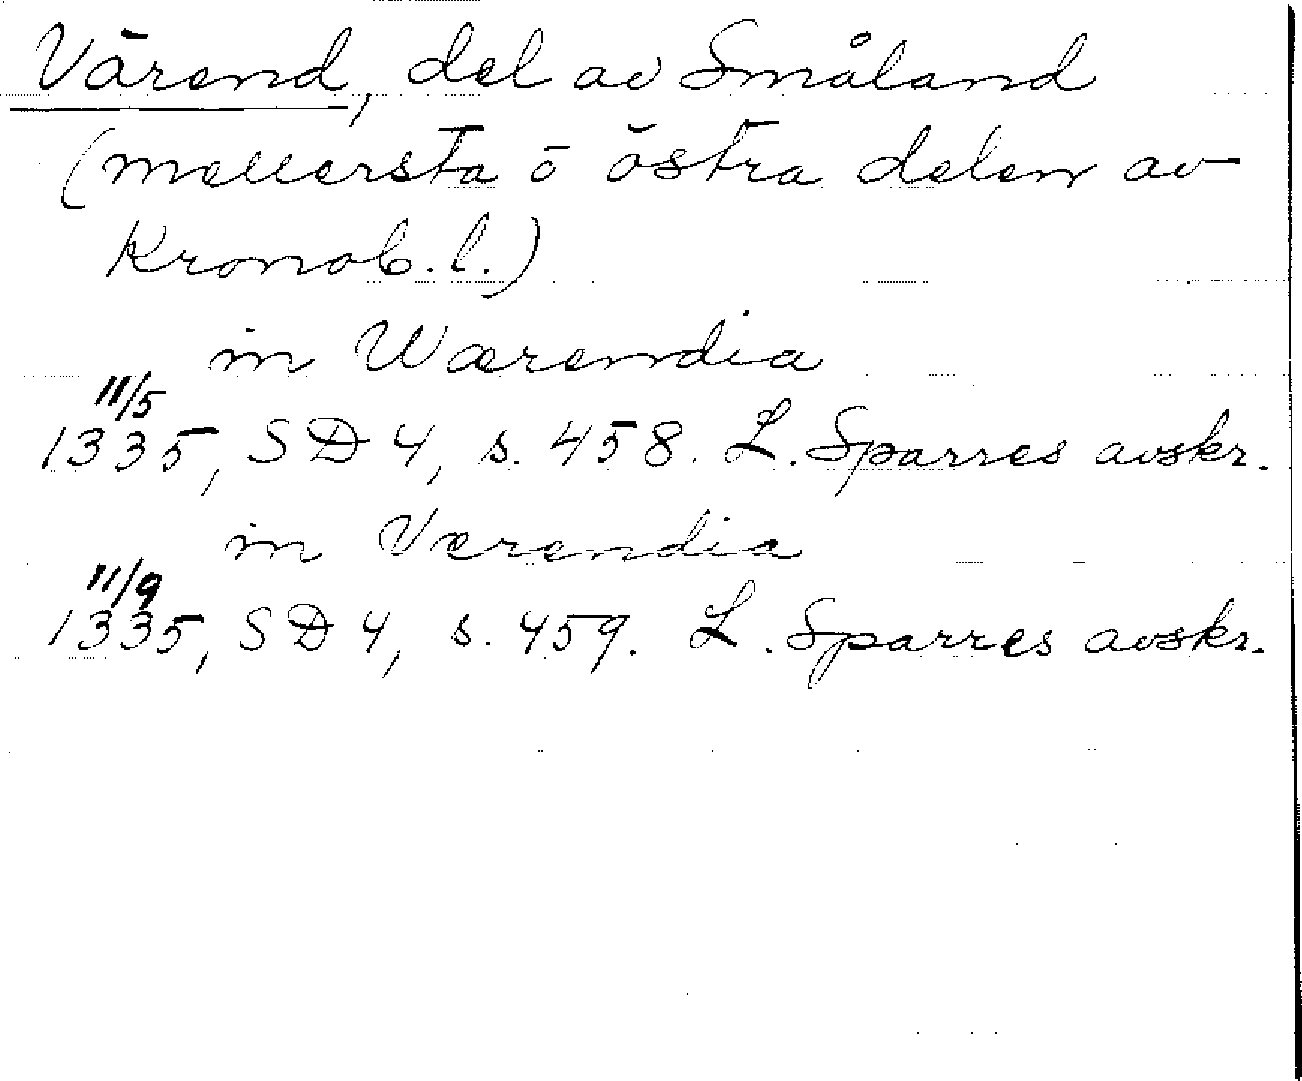 Värend, del av Småland
(mellersta o östra delen av
Kronob. l.)
in Wærendia
11/5
1335, SD 4, s. 458. L. Sparres avskr.
in Værendia
11/9
1335, SD 4, s. 459. L. Sparres avskr.